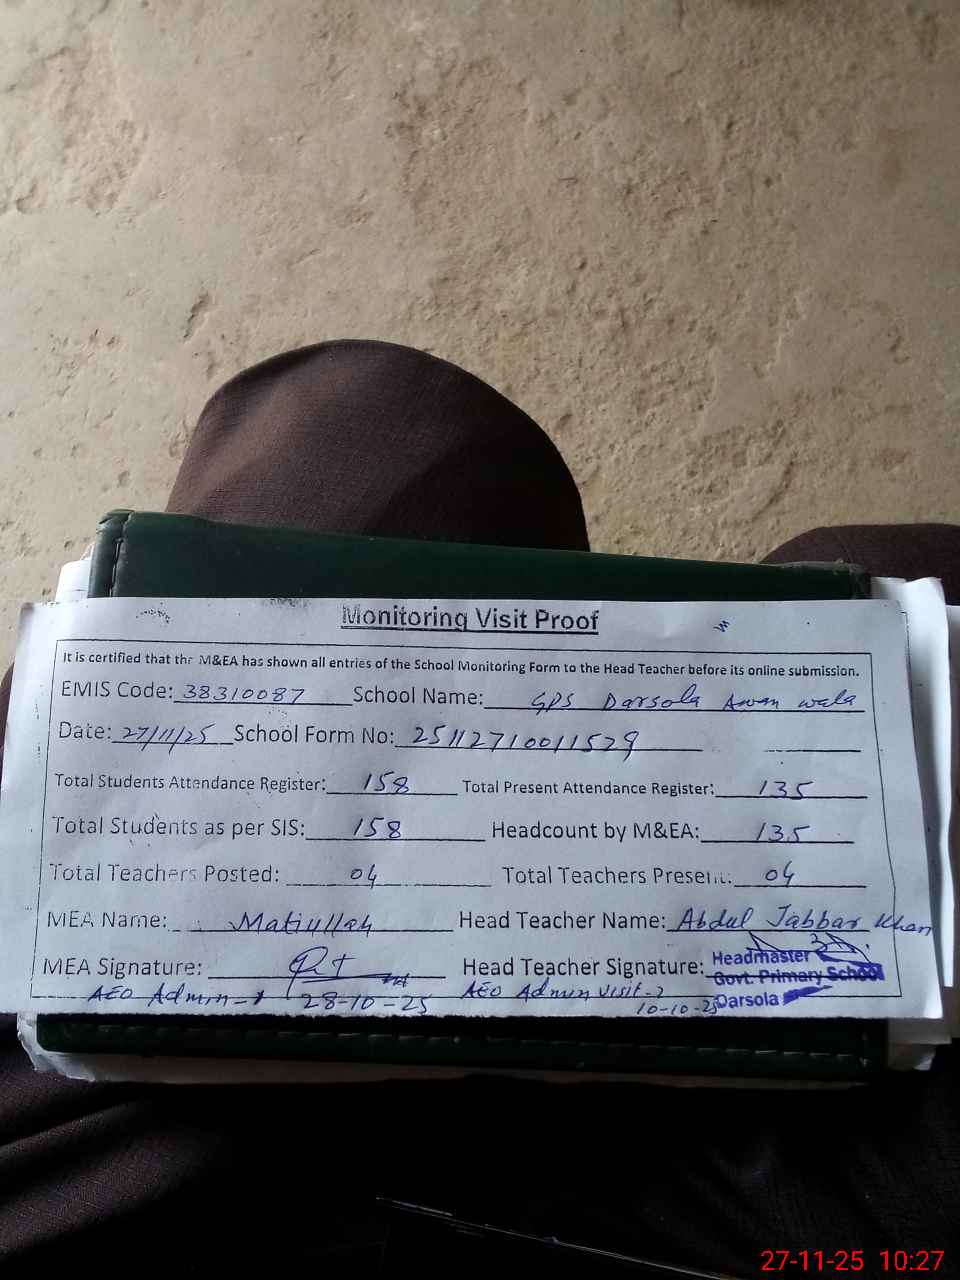 Monitoring Visit Proof
It is certified that the M&EA has shown all entries of the School Monitoring Form to the Head Teacher before its online submission.
EMIS Code: 38310087 School Name: GPS Darsola Awan wala
Date: 27/11/25 School Form No: 25112710011529
Total Students Attendance Register: 158 Total Present Attendance Register: 135
Total Students as per SIS: 158 Headcount by M&EA: 135
Total Teachers Posted: 04 Total Teachers Present: 04
MEA Name: Matiullah Head Teacher Name: Abdul Jabbar Khan
MEA Signature: Head Teacher Signature:
Headmaster
Govt. Primary School
Darsola
AEO Admin-1 28-10-25 AEO Admin Visit-2
10-10-25
27-11-25 10:27